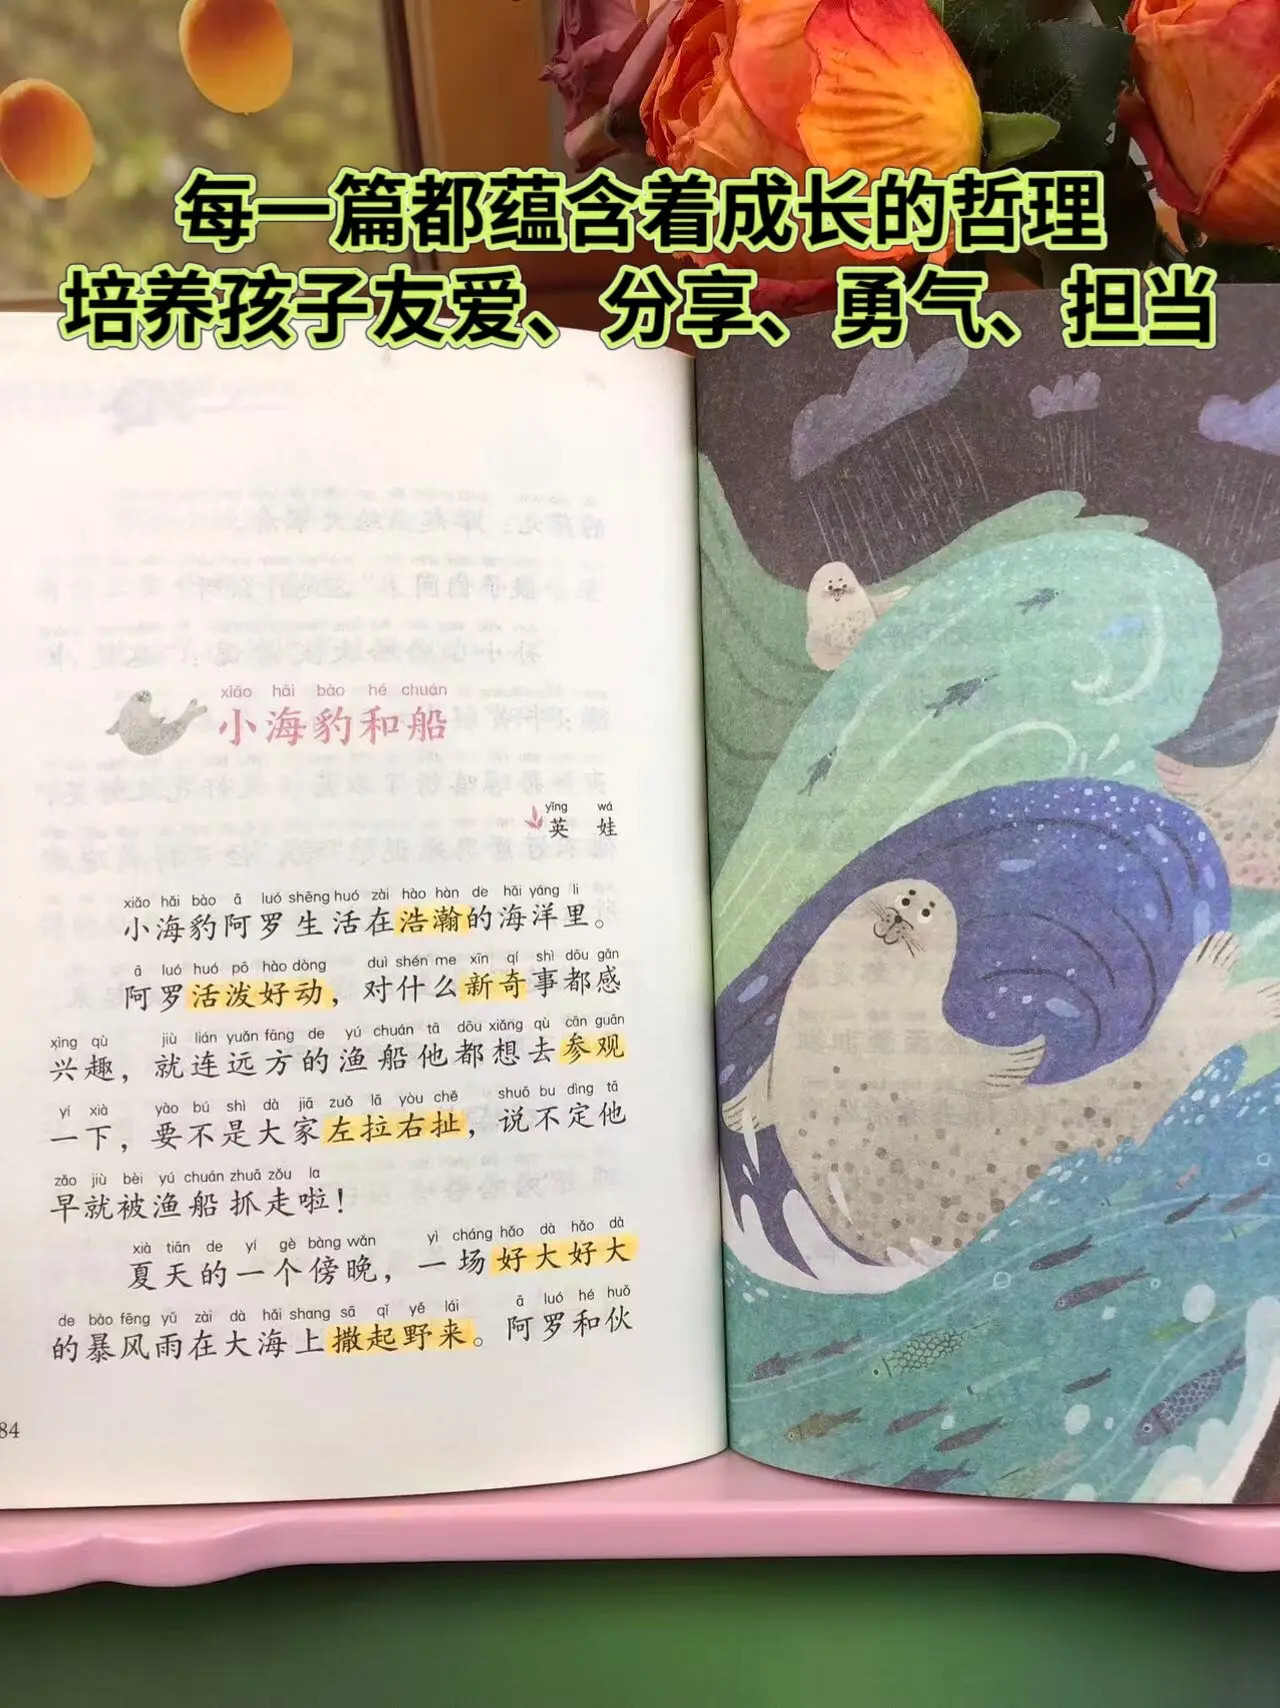 每一篇都蕴含着成长的哲理
培养孩子友爱、分享、勇气、担当
xiǎo hǎi bào hé chuán
小海豹和船
yīng wá
英 娃
xiǎo hǎi bào ā luó shēng huó zài hào hàn de hǎi yáng li
小海豹阿罗生活在浩瀚的海洋里。
ā luó huó pō hào dòng duì shén me xīn qí shì dōu gǎn
阿罗活泼好动，对什么新奇事都感
xìng qù jiù lián yuǎn fāng de yú chuán tā dōu xiǎng qù cān guān
兴趣，就连远方的渔船他都想去参观
yí xià yào bú shì dà jiā zuǒ lā yòu chě shuō bu dìng tā
一下，要不是大家左拉右扯，说不定他
zǎo jiù bèi yú chuán zhuā zǒu la
早就被渔船抓走啦！
xià tiān de yí gè bàng wǎn yì cháng hǎo dà hǎo dà
夏天的一个傍晚，一场好大好大
de bào fēng yǔ zài dà hǎi shang sā qǐ yě lái ā luó hé huǒ
的暴风雨在大海上撒起野来。阿罗和伙
84